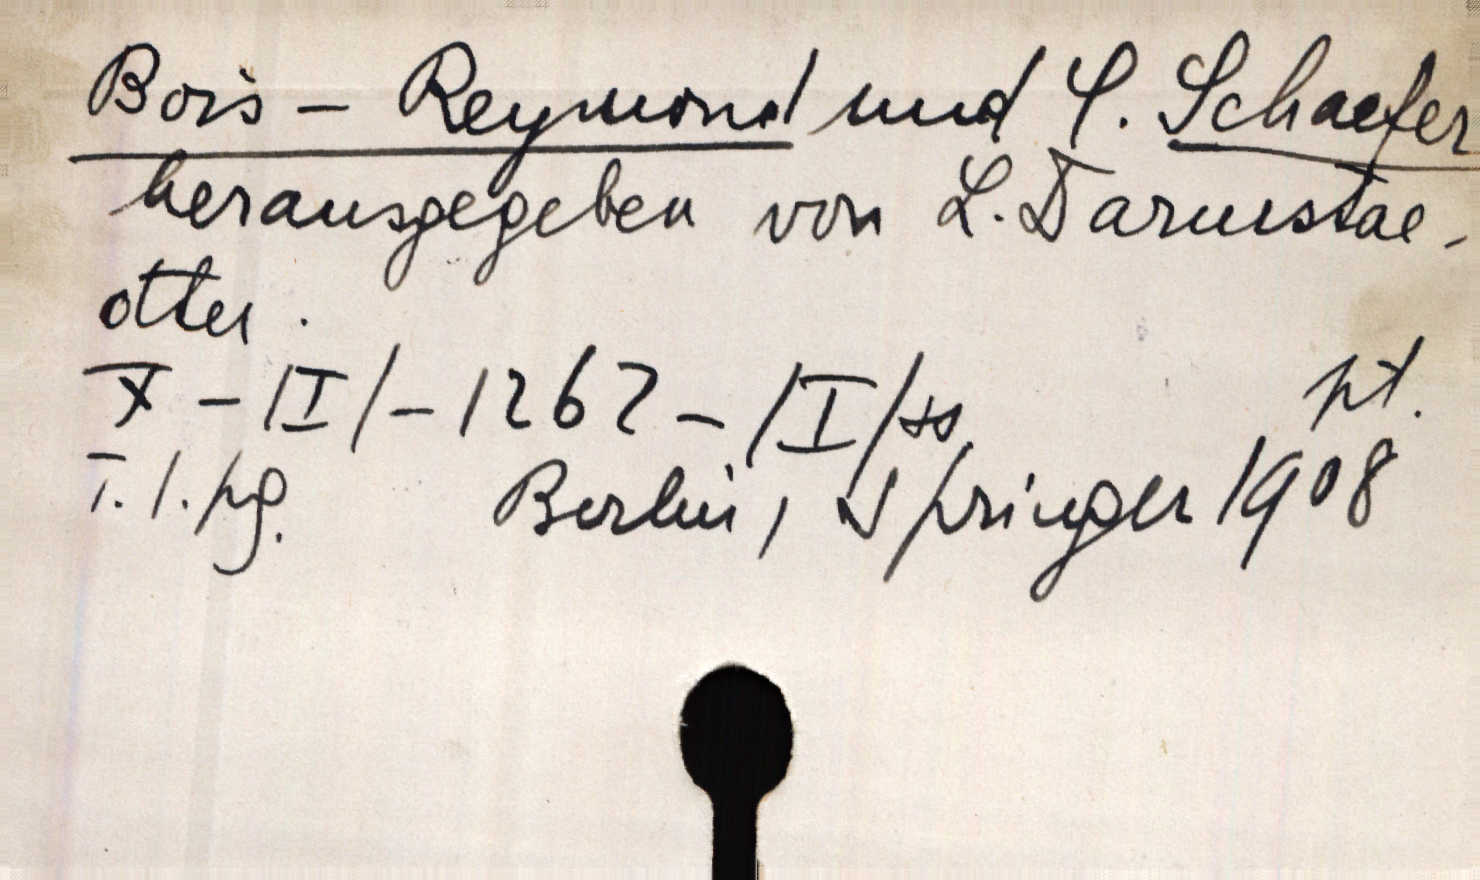 Bois - Reymond und C. Schaefer
herausgegeben von L. Darmstae-
dter.
X - /I/ - 1262 - /I/ ss pt.
T. 1. pg. Berlin, Springer 1908